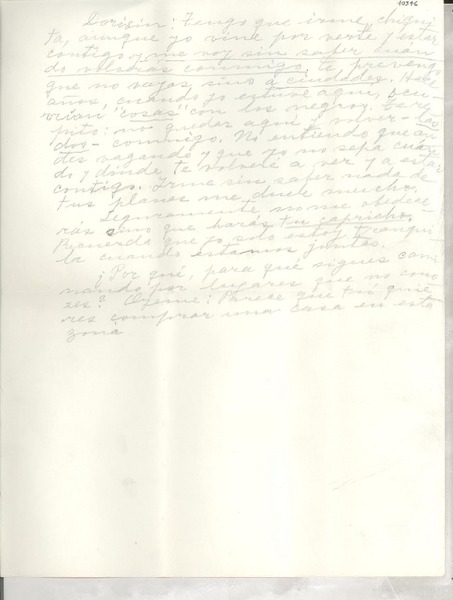 10396
Dorisín: Tengo que irme, chiqui
ta, aunque yo vine por verte y estar
contigo y me voy sin saber cuan
do volverás conmigo, te prevengo
que no vayas sino a ciudades. Hace
años, cuando yo estuve aquí, ocu-
rrían "cosas" con los negros. Te re
pito: no quedar aquí y volver - las
dos - conmigo. No entiendo que an
des vagando y que yo no sepa cuán
do y dónde te volveré a ver y a estar
contigo. Irme sin saber nada de
tus planes me duele mucho.
Seguramente no me obedece
rás sino que harás tu capricho.
Recuerda que yo solo estoy tranqui
la cuando estamos juntas.
¿Por qué, para qué sigues cami
nando por lugares que no cono
ces? Créeme: Parece que tú quie
res comprar una casa en esta
zona